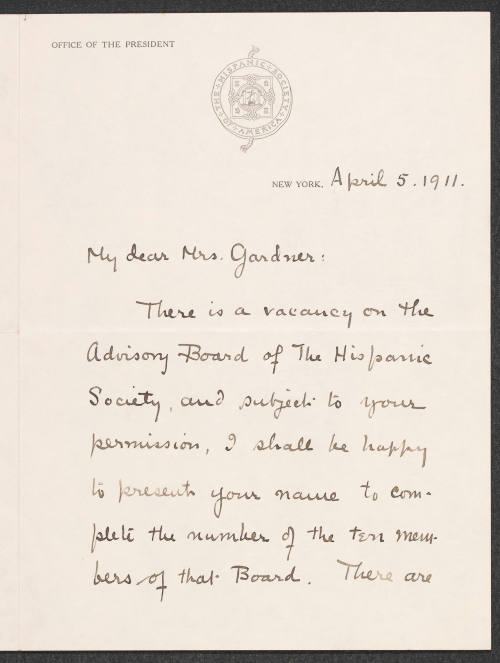 OFFICE OF THE PRESIDENT
THE HISPANIC SOCIETY OF AMERICA
NEW YORK, April 5. 1911.
My dear Mrs. Gardner:
There is a vacancy on the
Advisory Board of The Hispanic
Society, and subject to your
permission, I shall be happy
to present your name to com-
plete the number of the ten mem-
bers of that Board. There are